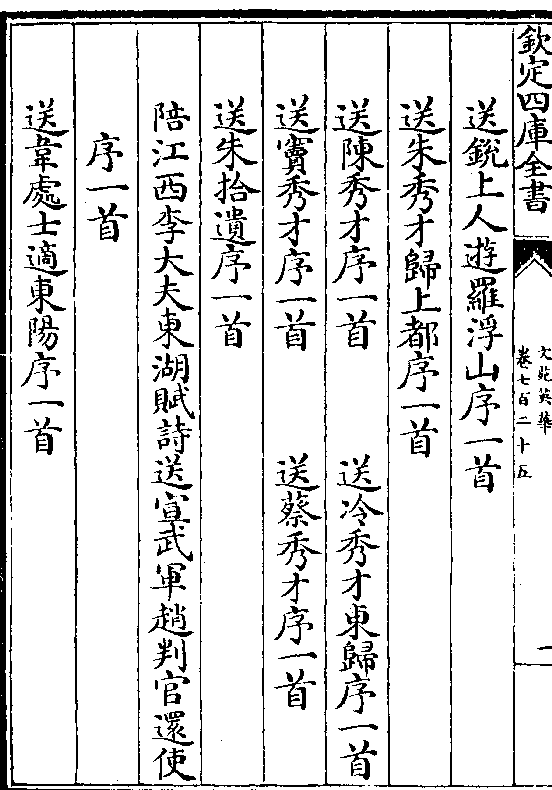 欽定四庫全書
文苑英華
卷七百二十五
一
送銳上人遊羅浮山序一首
送朱秀才歸上都序一首
送陳秀才序一首　送冷秀才東歸序一首
送竇秀才序一首　送蔡秀才序一首
送朱拾遺序一首
陪江西李大夫東湖賦詩送宣武軍趙判官還使
序一首
送韋處士適東陽序一首